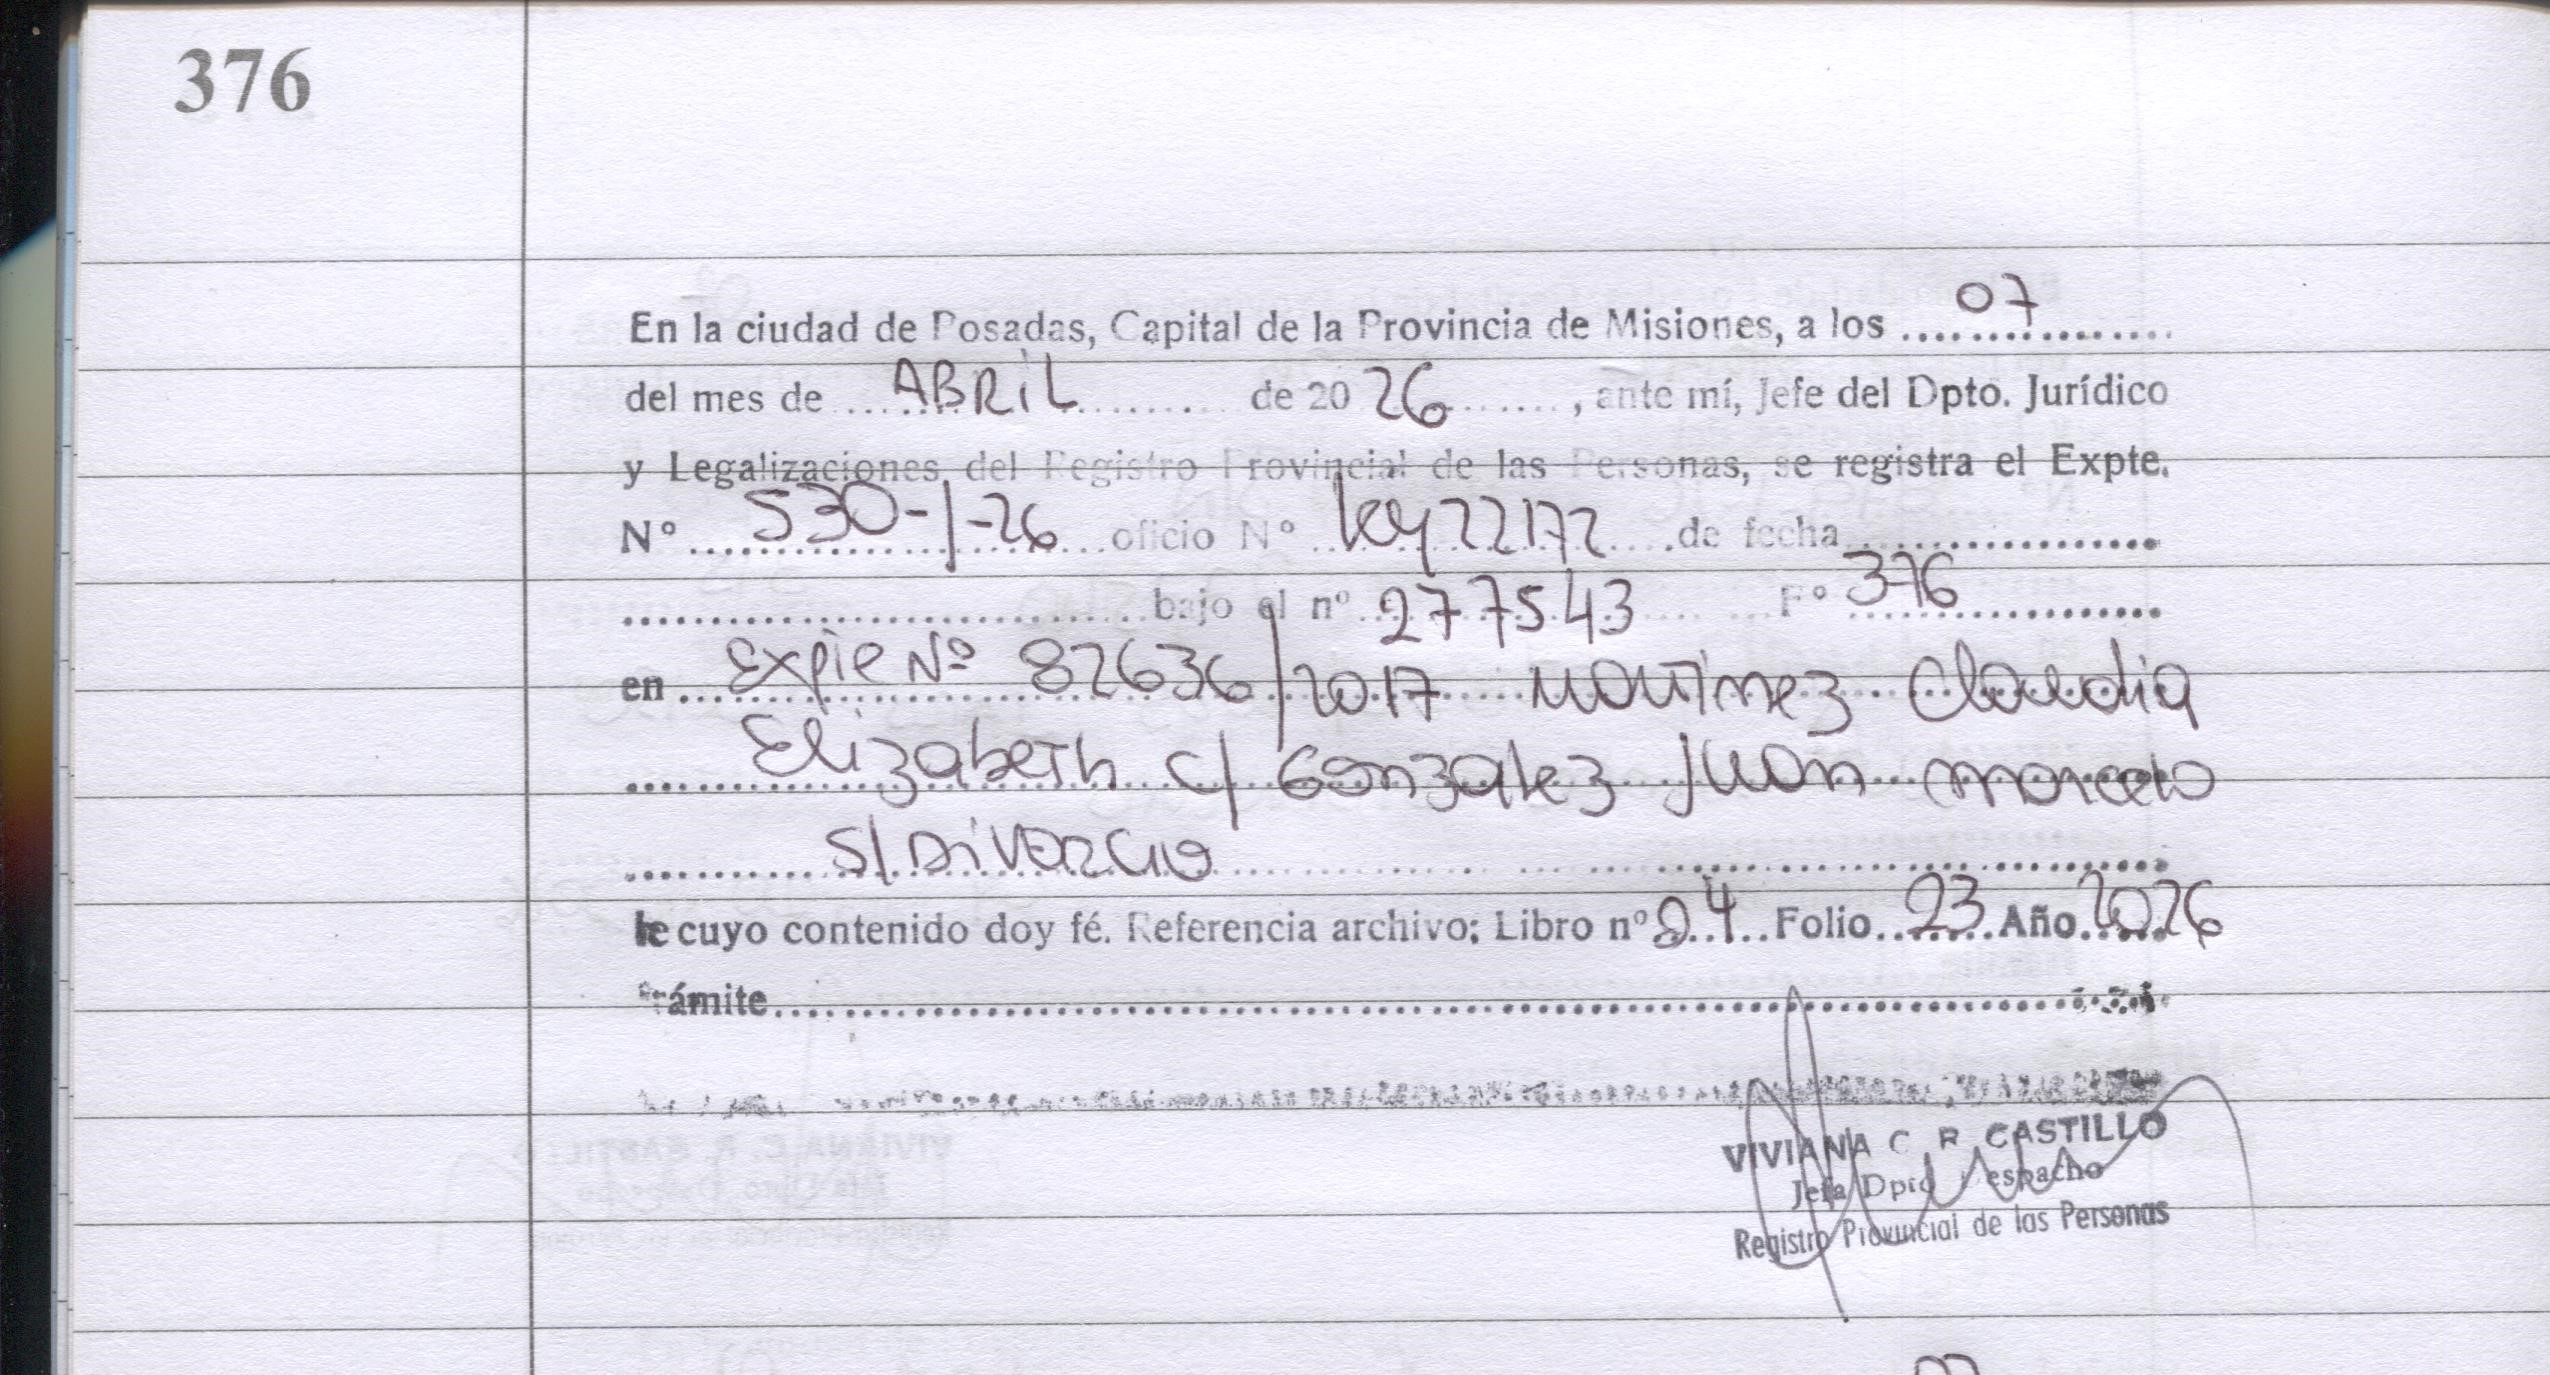 376
En la ciudad de Posadas, Capital de la Provincia de Misiones, a los 07
del mes de ABRIL de 20 26, ante mí, Jefe del Dpto. Jurídico
y Legalizaciones del Registro Provincial de las Personas, se registra el Expte.
Nº 530-1-26 oficio Nº 22172 de fecha
bajo el nº 277543 Fº 376
en Expte Nº 82636/2017 Martinez Claudia
Elizabeth c/ Gonzalez Juan Marcelo
S/ DIVORCIO
de cuyo contenido doy fé. Referencia archivo; Libro nº 04 Folio 23 Año 2026
trámite
VIVIANA C. R. CASTILLO
Jefa Dpto Despacho
Registro Provincial de las Personas